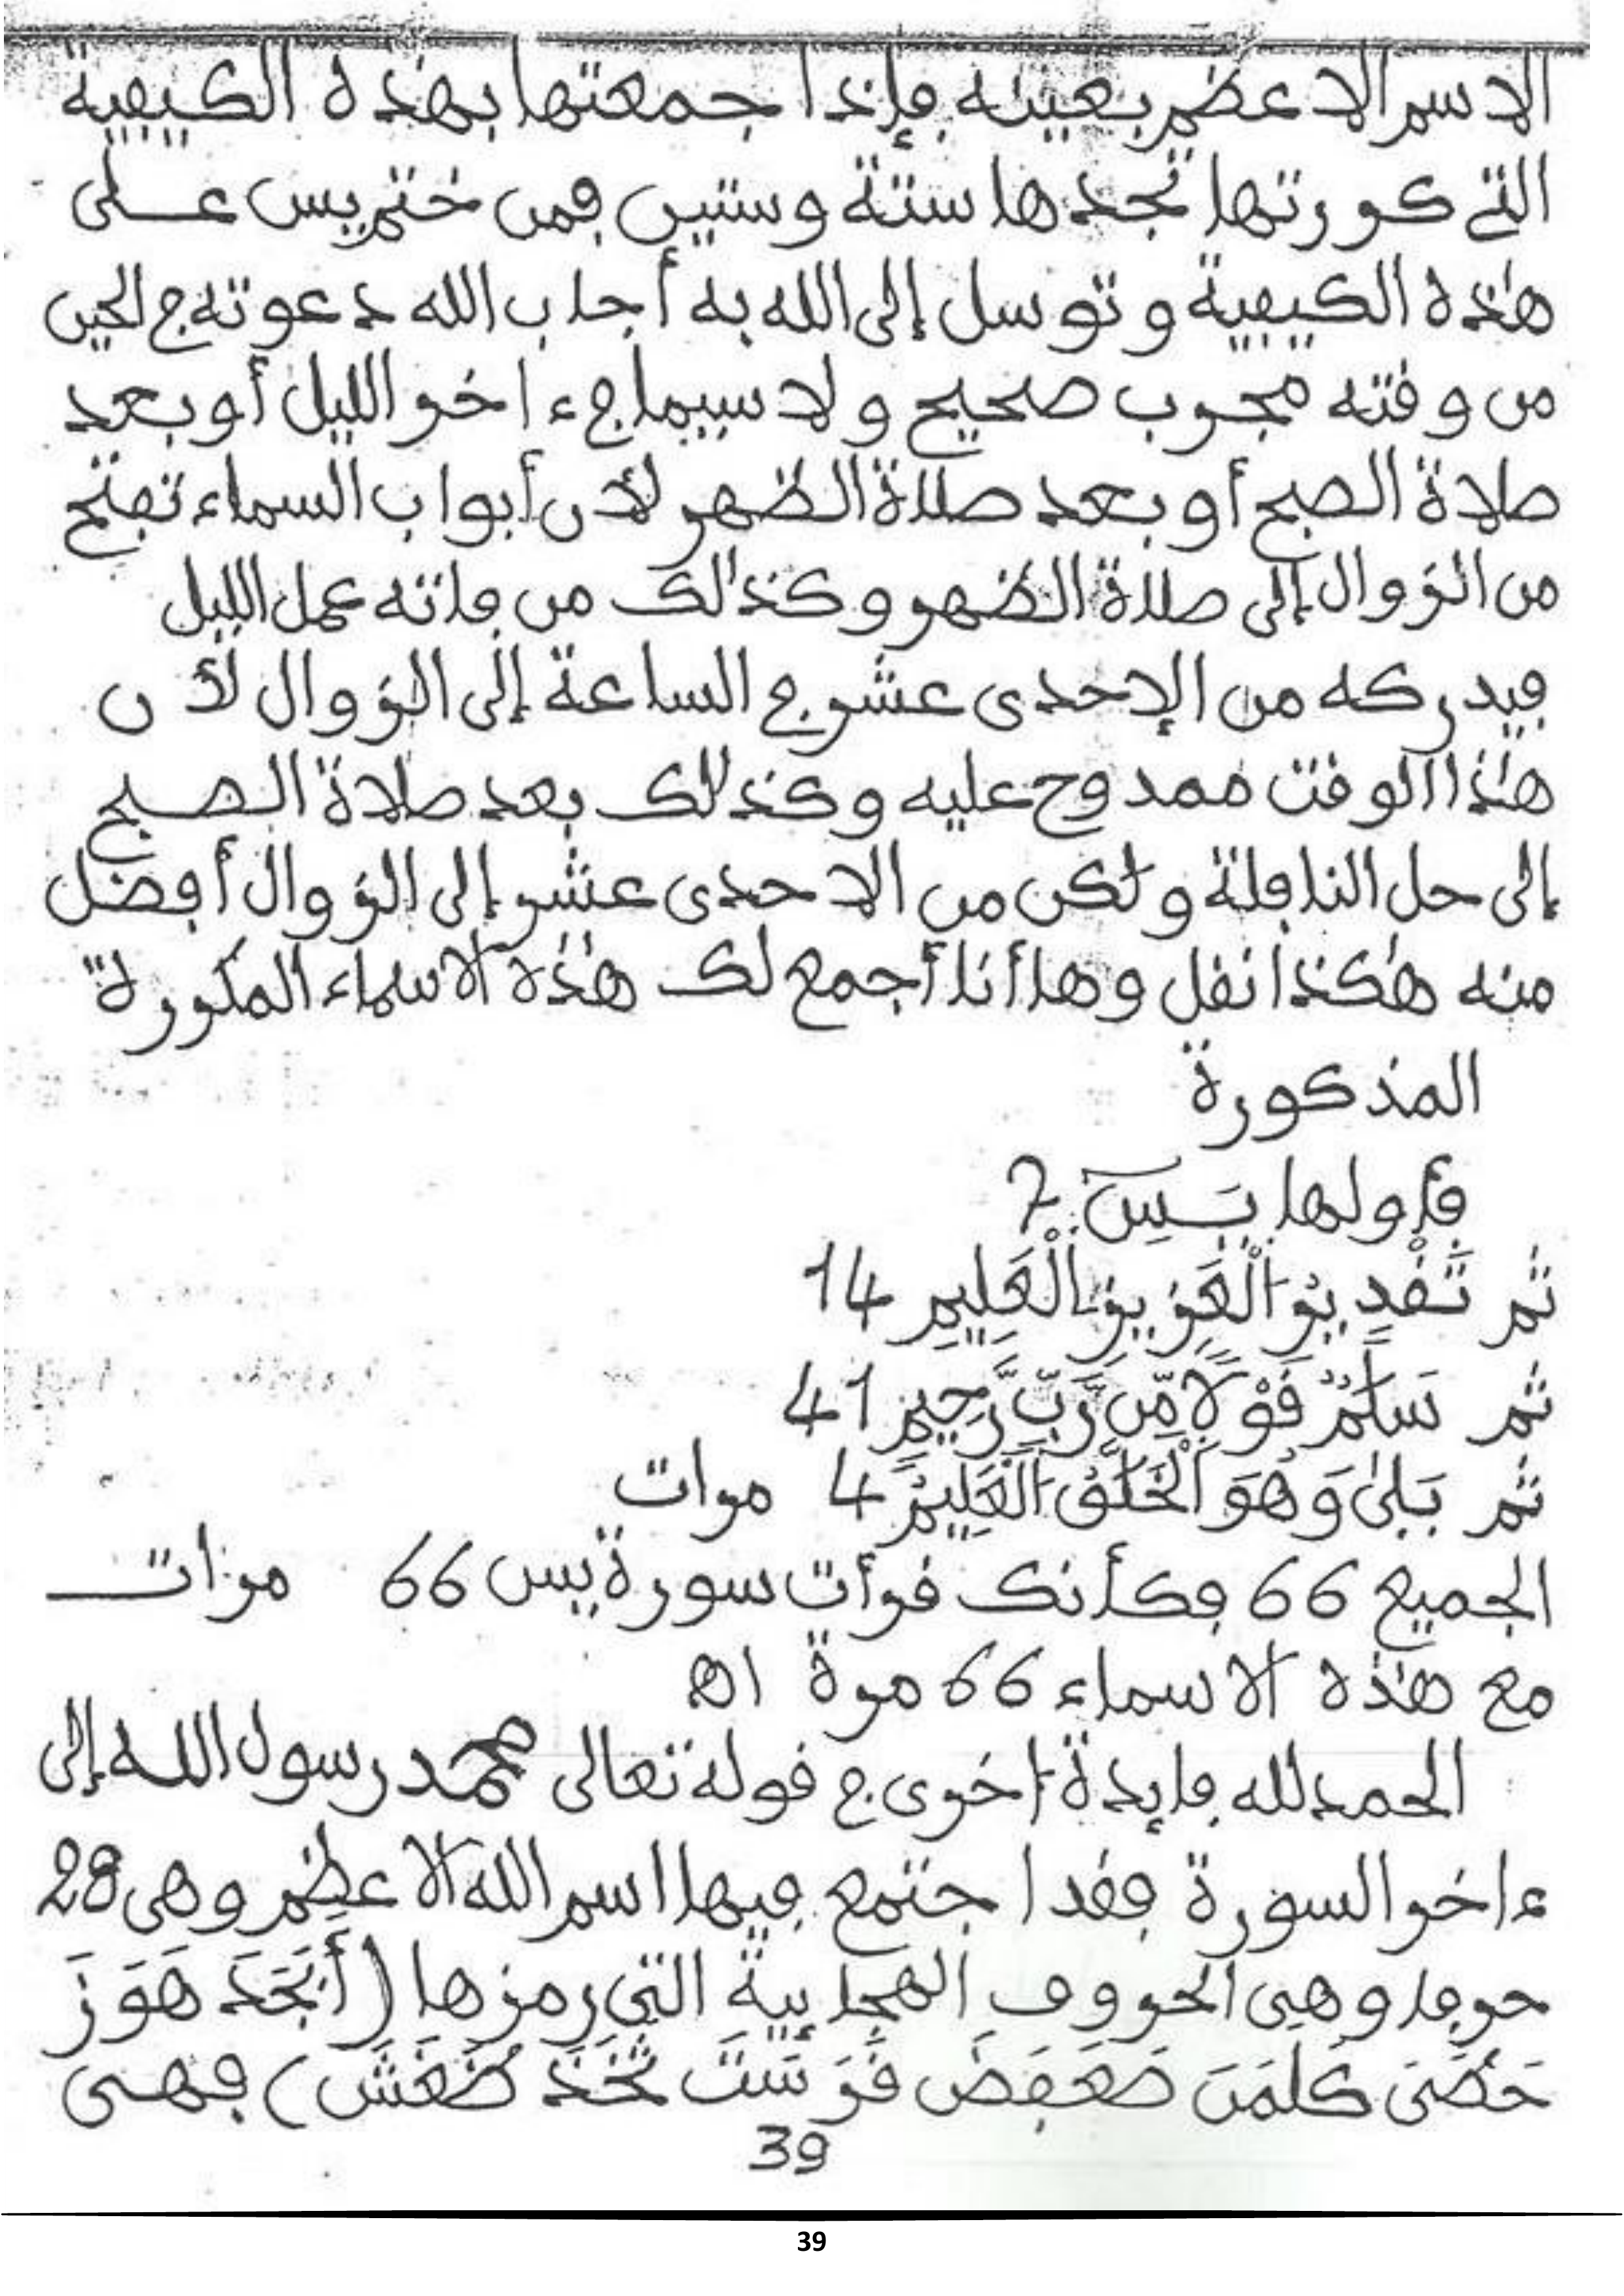 الاسم الاعظم بعينه فإذا جمعتها بهذه الكيفية
التي كررتها تجدها ستة وستين فمن ختم يس على
هذه الكيفية وتوسل إلى الله به أجاب الله دعوته في الحين
من وقته مجرب صحيح ولا سيما في ءاخر الليل أو بعد
صلاة الصبح أو بعد صلاة الظهر لأن أبواب السماء تفتح
من الزوال إلى صلاة الظهر وكذالك من فاته عمل الليل
فيدركه من الإحدى عشر في الساعة إلى الزوال لأن
هٰذا الوقت ممدوح عليه وكذالك بعد صلاة الصبح
إلى حل النافلة ولٰكن من الاحدى عشر إلى الزوال أفضل
منه هٰكذا نقل وها أنا أجمع لك هٰذه الاسماء المكررة
المذكورة
فأولها يَسِٓ 7
ثم تَقْدِيرُ الْعَزِيزِ الْعَلِيمِ 14
ثم سَلَٰمٌ قَوْلًا مِّن رَّبٍّ رَّحِيمٍ 41
ثم بَلَىٰ وَهُوَ اَلْخَلَّٰقُ الْعَلِيمُ 4 مرات
الجميع 66 فكأنك قرأت سورة يس 66 مرات
مع هٰذه الاسماء 66 مرة اه
الحمد لله فايدة اخرى في قوله تعالى محمد رسول الله إلى
ءاخر السورة فقد اجتمع فيها اسم الله الاعظم وهى 28
حرفا وهي الحروف الهجايية التي رمزها (أَبَجَدَ هَوَزَ
حَطَىَ كَلَمَنَ صَعَفَضَ قَرَسَتَ ثَخَذَ ظَغَشَ) فهى
39
39